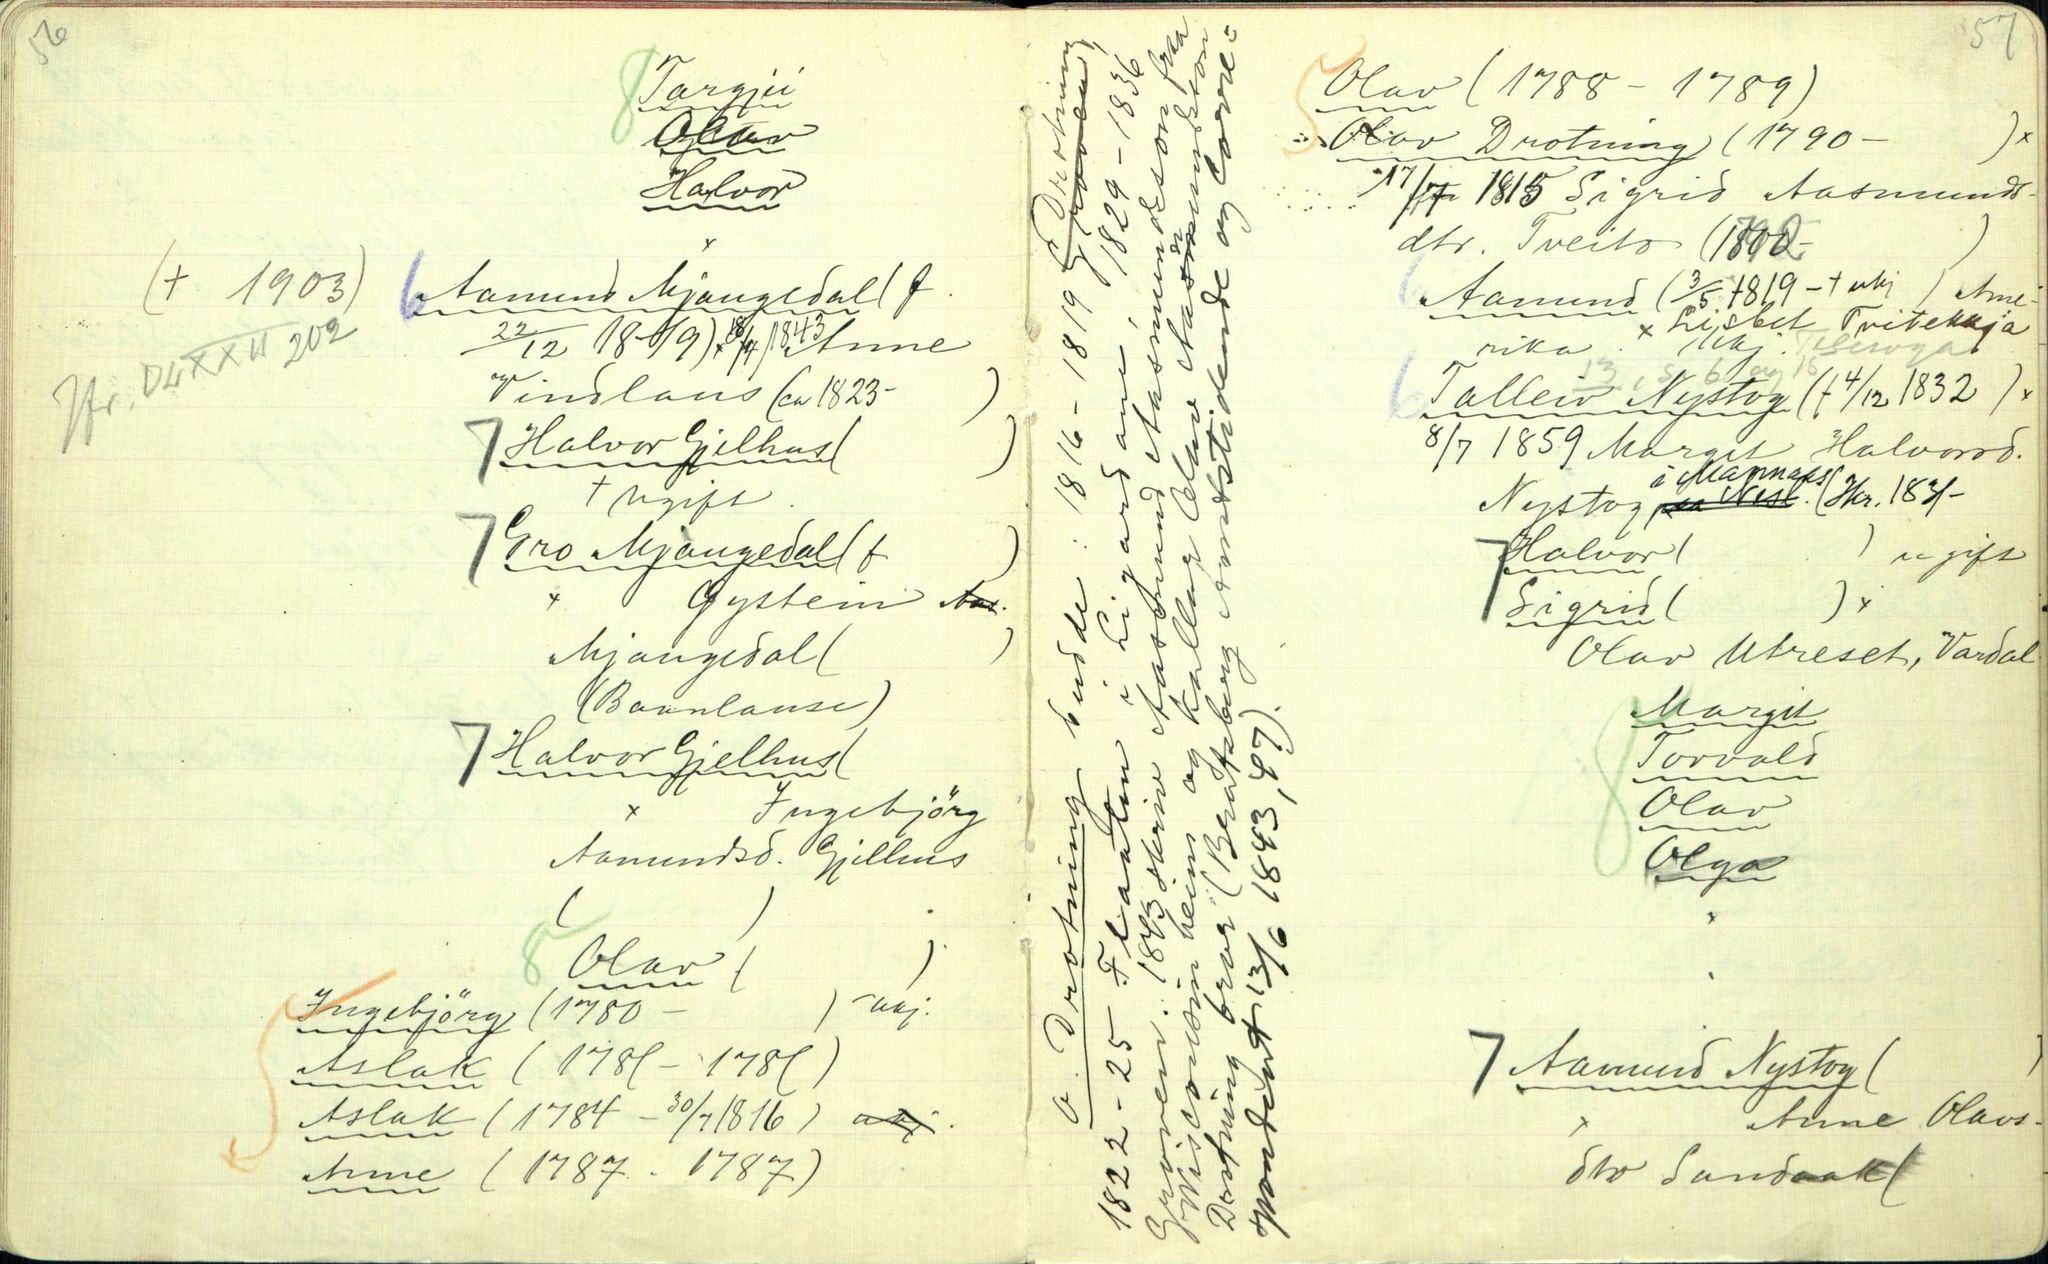 56
8 Targjei
Olav
Halvor
x
(+ 1903)
Jfr. DLXXII 202
6 Aamund Mjaugedal (f.
22/12 18-19) x 18/4 1843 Anne
Vindlaus (ca 1823- )
7 Halvor Gjelhus ( )
+ ugift.
7 Gro Mjaugedal (f )
x Gystein Aas.
Mjaugedal ( )
(Baanlause)
7 Halvor Gjelhus (
x Ingebjörg
Aamundsd. Gjelhus
( ) .
8 Olav ( )
5 Ingebjörg (1780 - ) ukj.
Aslak (1781 - 1781)
Aslak (1784 - 30/7 1816) ukj.
Anne (1787 - 1787)
O. Drotning budde: 1816-1819 Drotning,
1822-25 Flaatin i Ligardane, 1829-1836
Grøven. 1843 skriv Aasmund Aasmundsson fraa
Wisconsin heim og kallar Olav Aasmundsson
Drotning bror (Bratsberg Amtstidende og Corre=
spondent 13/6 1843, 47).
57
5 Olav (1788 - 1789)
Olav Drotning (1790 - ) x
17/7 1815 Sigrid Aasmunds-
dtr. Tveito (1800- )
6 Aamund (3/5 1819 - + ukj ) Ame-
x Lisbet Tvitekkja
rika. ukj.
13, s. 6 og 15
6 Talleiv Nystog (f 4/12 1832 ) x
8/7 1859 Margit Halvorsd.
i Mannaas
Nystog (Hkr. 183-
7 Halvor ( ) ugift
7 Sigrid ( ) x
Olav Utreset, Vardal
8 Margit
Torvald
Olav
Olga
7 Aamund Nystog ( )
x Anne Olavs-
dtr Sundaak (